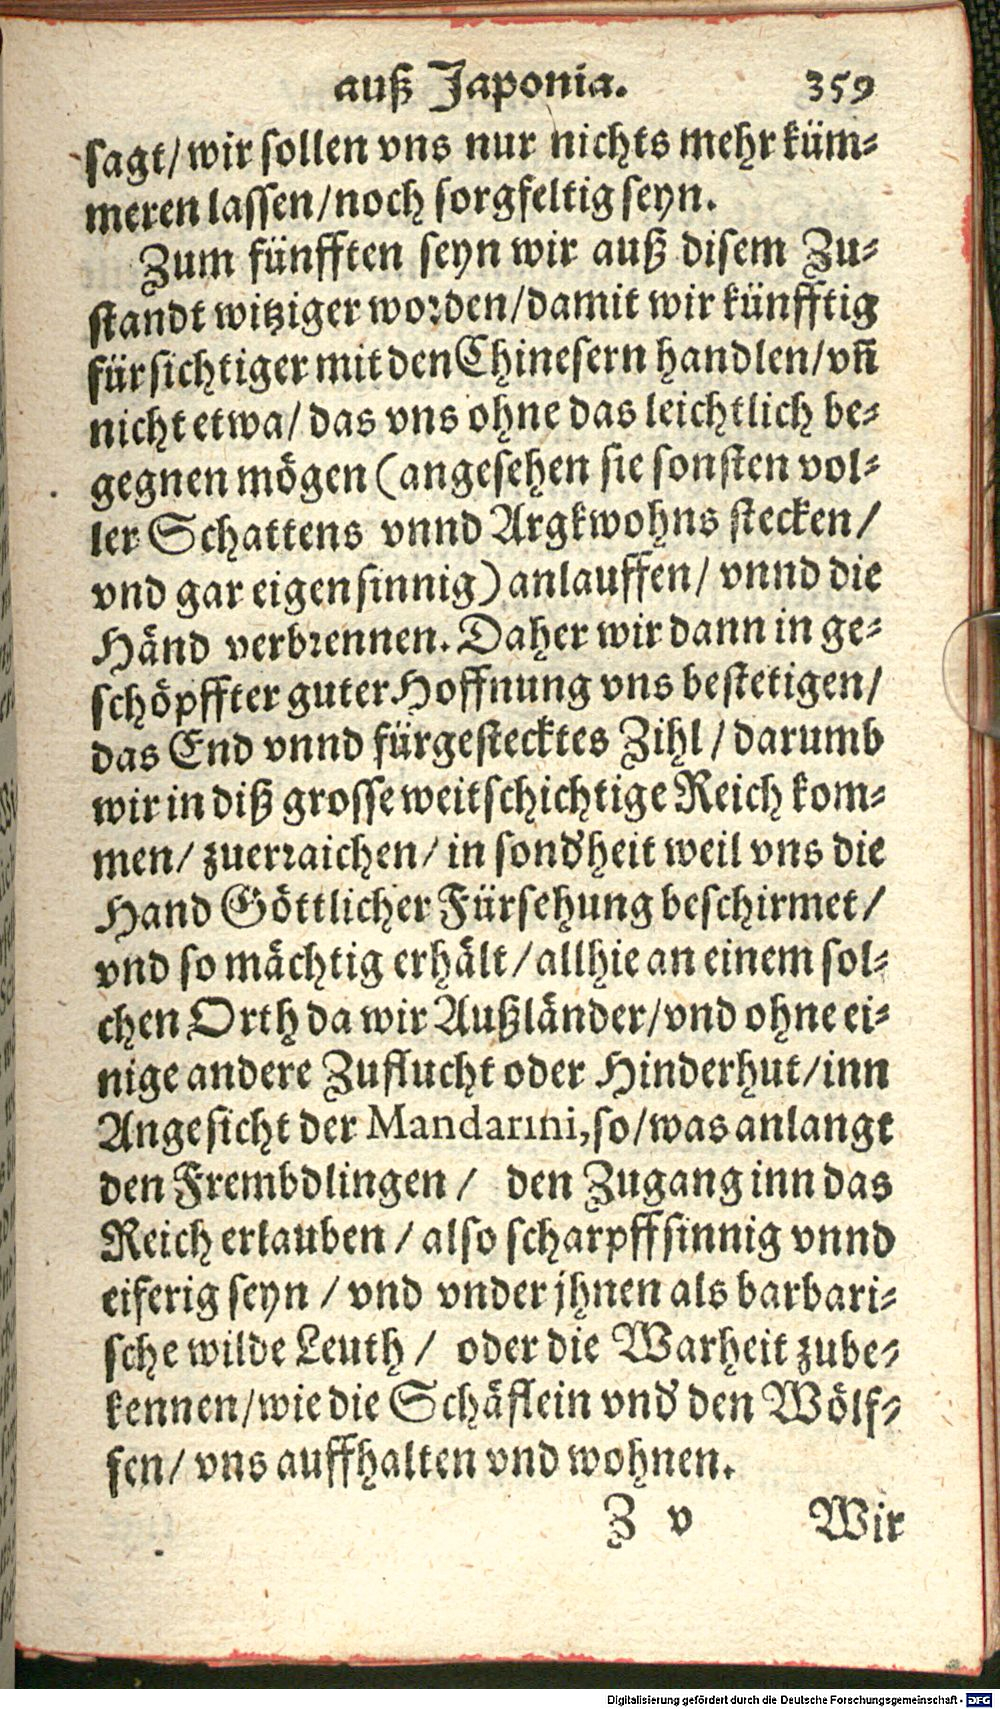 auß Japonia. 359
sagt/ wir sollen vns nur nichts mehr küm-
meren lassen/ noch sorgfeltig seyn.
Zum fünfften seyn wir auß disem Zu-
standt witziger worden/ damit wir künfftig
fürsichtiger mit den Chinesern handlen/ vn̄
nicht etwa/ das vns ohne das leichtlich be-
gegnen mögen (angesehen sie sonsten vol-
ler Schattens vnnd Argkwohns stecken/
vnd gar eigensinnig) anlauffen/ vnnd die
Händ verbrennen. Daher wir dann in ge-
schöpffter guter Hoffnung vns bestetigen/
das End vnnd fürgestecktes Zihl/ darumb
wir in diß grosse weitschichtige Reich kom-
men/ zuerraichen/ in sond'heit weil vns die
Hand Göttlicher Fürsehung beschirmet/
vnd so mächtig erhält/ allhie an einem sol-
chen Orth da wir Außländer/ vnd ohne ei-
nige andere Zuflucht oder Hinderhut/ inn
Angesicht der Mandarini, so/ was anlangt
den Frembdlingen/ den Zugang inn das
Reich erlauben/ also scharpffsinnig vnnd
eiferig seyn/ vnd vnder jhnen als barbari-
sche wilde Leuth/ oder die Warheit zube-
kennen/ wie die Schäflein vnd' den Wölf-
fen/ vns auffhalten vnd wohnen.
Z v Wir
Digitalisierung gefördert durch die Deutsche Forschungsgemeinschaft - DFG